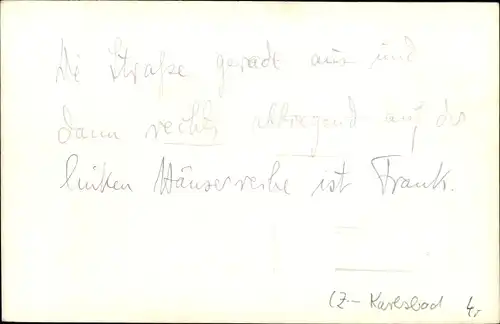 Die Straße gerade aus und
dann rechts abbiegend auf der
linken Häuserreihe ist Frank.
CZ - Karlsbad 4,-